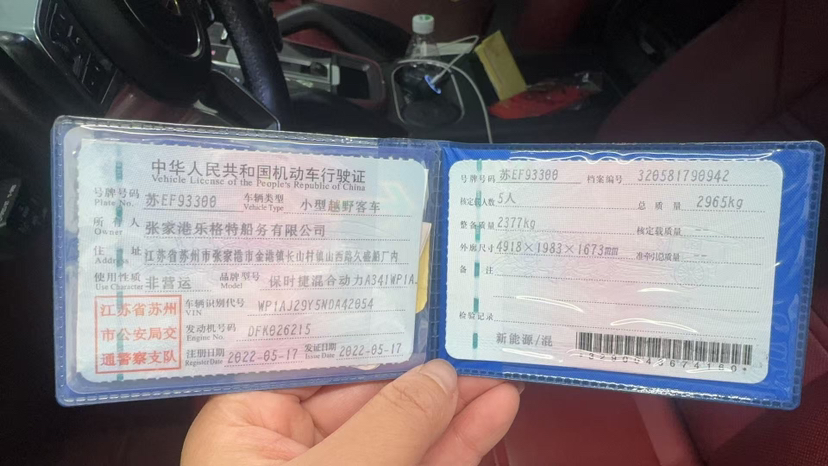 中华人民共和国机动车行驶证
Vehicle License of the People's Republic of China
号牌号码 Plate No. 苏EF93300 车辆类型 Vehicle Type 小型越野客车
所有人 Owner 张家港乐格特船务有限公司
住址 Address 江苏省苏州市张家港市金港镇长山村镇山西路久盛船厂内
使用性质 Use Character 非营运 品牌型号 Model 保时捷混合动力A341WP1A
江苏省苏州
市公安局交
通警察支队
车辆识别代号 VIN WP1AJ29Y5NDA42054
发动机号码 Engine No. DFK026215
注册日期 Register Date 2022-05-17 发证日期 Issue Date 2022-05-17
号牌号码 苏EF93300 档案编号 320581790942
核定载人数 5人 总质量 2965kg
整备质量 2377kg 核定载质量 --
外廓尺寸 4918×1983×1673mm 准牵引总质量 --
备注
检验记录
新能源/混